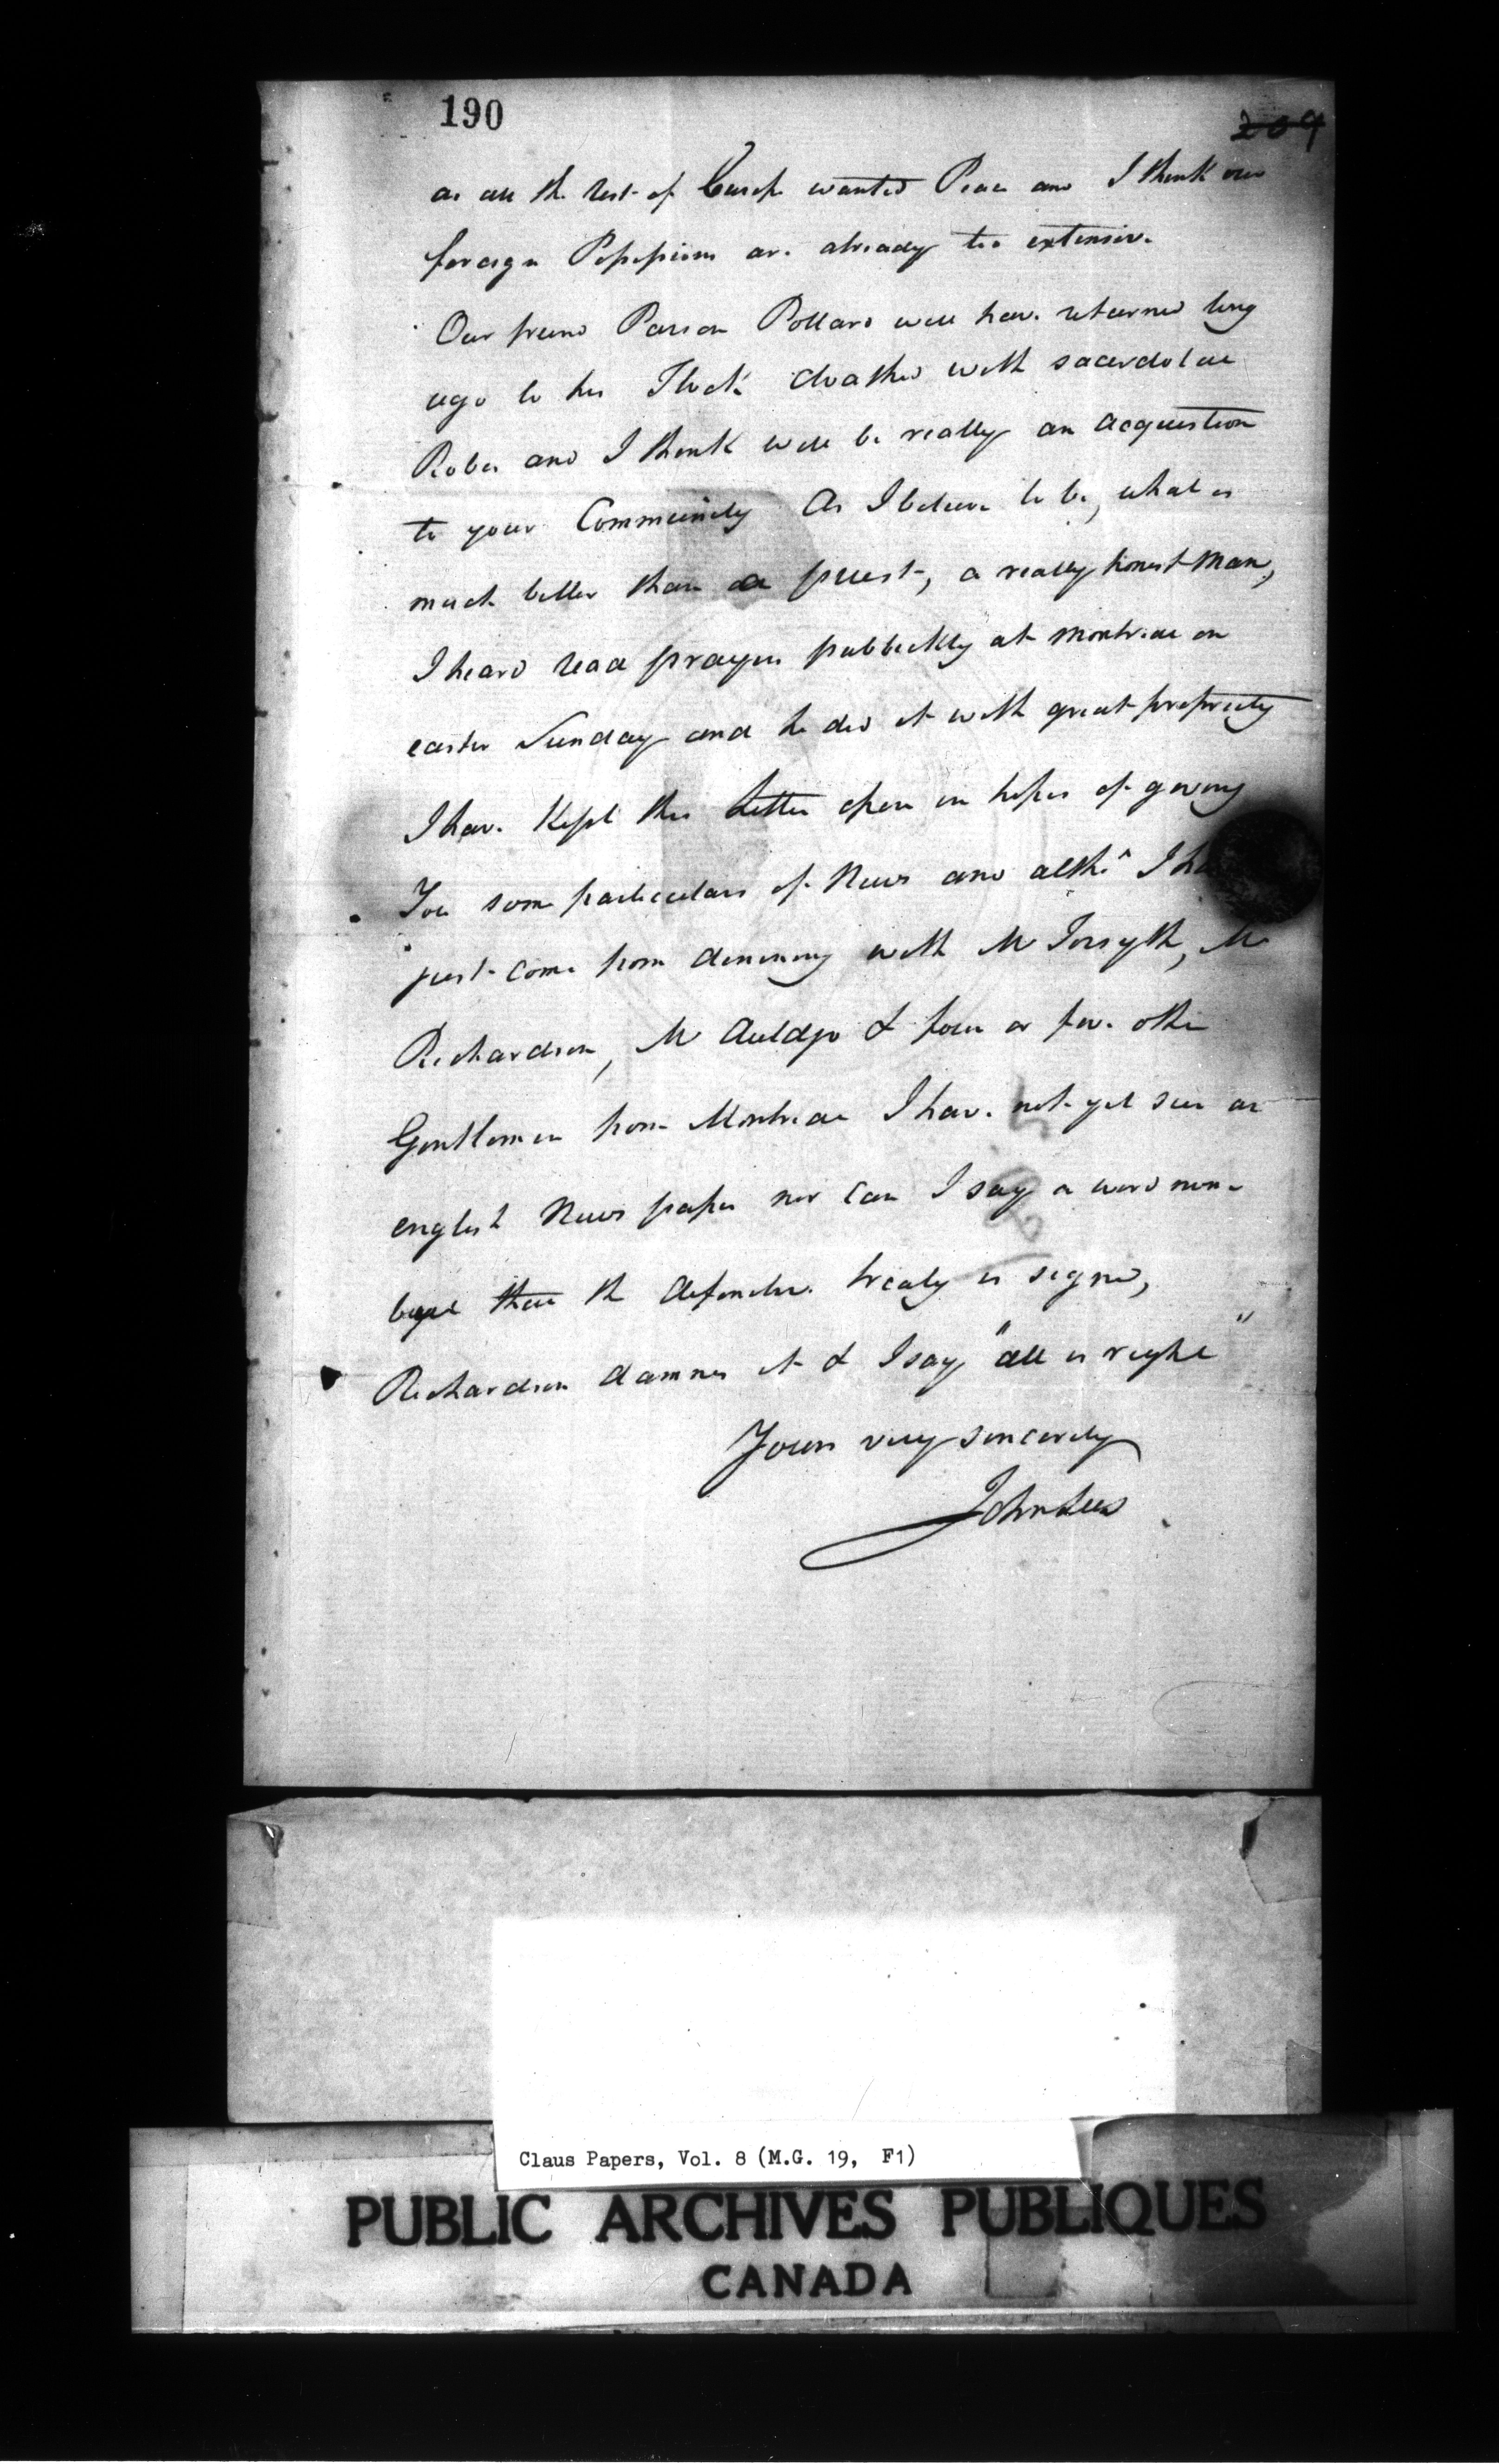 190
209
as all the rest of Europe wanted Peace and I think our
foreign Possessions are already too extensive.
Our friend Parson Pollard will have returned long
ago to his Flock cloathed with sacerdotal
Robes and I think will be really an acquestion
to your Community As I believe to be, what is
much better than a priest, a really honest Man,
I heard read prayers publickly at Montreal on
easter Sunday and he did it with great propriety
I have Kept this Letter open in hopes of giving
You some particulars of News and altho' I
just come from dinning with Mr Forsyth, Mr
Richardson, Mr Auldjo & four or five other
Gentlemen from Montreal I have not yet seen an
english News paper nor can I say a word more
the definitive treaty is signed,
Richardson damns it & I say "all is right"
Yours very sincerely
John Lees
Claus Papers, Vol. 8 (M.G. 19, F1)
PUBLIC ARCHIVES PUBLIQUES
CANADA